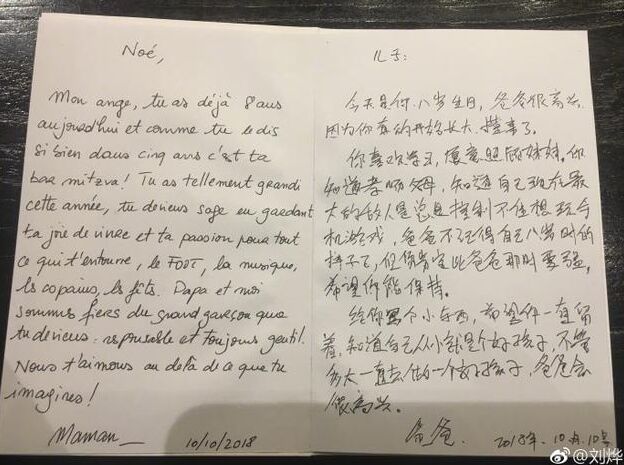 Noé,
Mon ange, tu as déjà 8 ans
aujourd'hui et comme tu le dis
si bien dans cinq ans c'est ta
bar mitzva! Tu as tellement grandi
cette année, tu deviens sage en gardant
ta joie de vivre et ta passion pour tout
ce qui t'entourre, le FOOT, la musique,
les copains, les fêts. Papa et moi
sommes fiers du grand garçon que
tu deviens: responsable et toujours gentil.
Nous t'aimons au delà de ce que tu
imagines!
Maman
10/10/2018
儿子:
今天是你八岁生日,爸爸很高兴
因为你真的开始长大,懂事了。
你喜欢学习,愿意照顾妹妹,你
知道孝顺父母,知道自己现在最
大的敌人是总是控制不住想玩手
机游戏,爸爸不记得自己八岁时的
样子了,但你肯定比爸爸那时要强,
希望你能保持。
给你写个小东西,希望你一直留
着,知道自己从小就是个好孩子,不管
多大一直去做一个好孩子,爸爸会
很高兴。
爸爸.
2018年.10月.10号
@刘烨